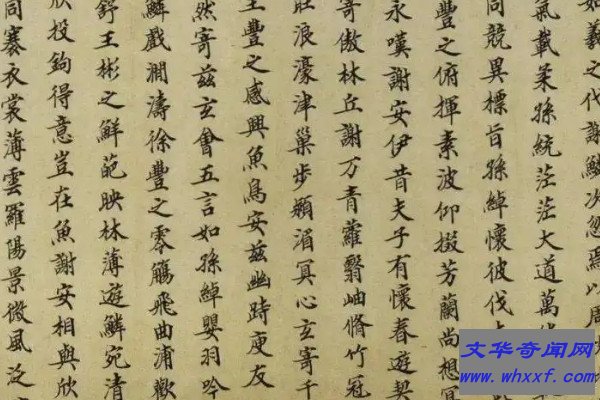 如羲之代謝鱗次忽焉以周
氣載柔孫統茫茫大道萬
同競異標旨孫綽懷彼伐
豐之俯揮素波仰掇芳蘭尚想冥
永嘆謝安伊昔夫子有懷春遊契
寄傲林丘謝万青蘿翳岫脩竹冠
莊浪濠津巢步潁湄冥心玄寄千
王豐之感興魚鳥安茲幽跱庾友
然寄茲玄會五言如孫綽嬰羽吟
鱗戲澗濤徐豐之零觴飛曲浦歡
舒王彬之鮮葩映林薄遊鱗宛清
欣投鉤得意豈在魚謝安相與欣
同褰衣裳薄雲羅陽景微風泛
文华奇闻网
www.whxxf.com